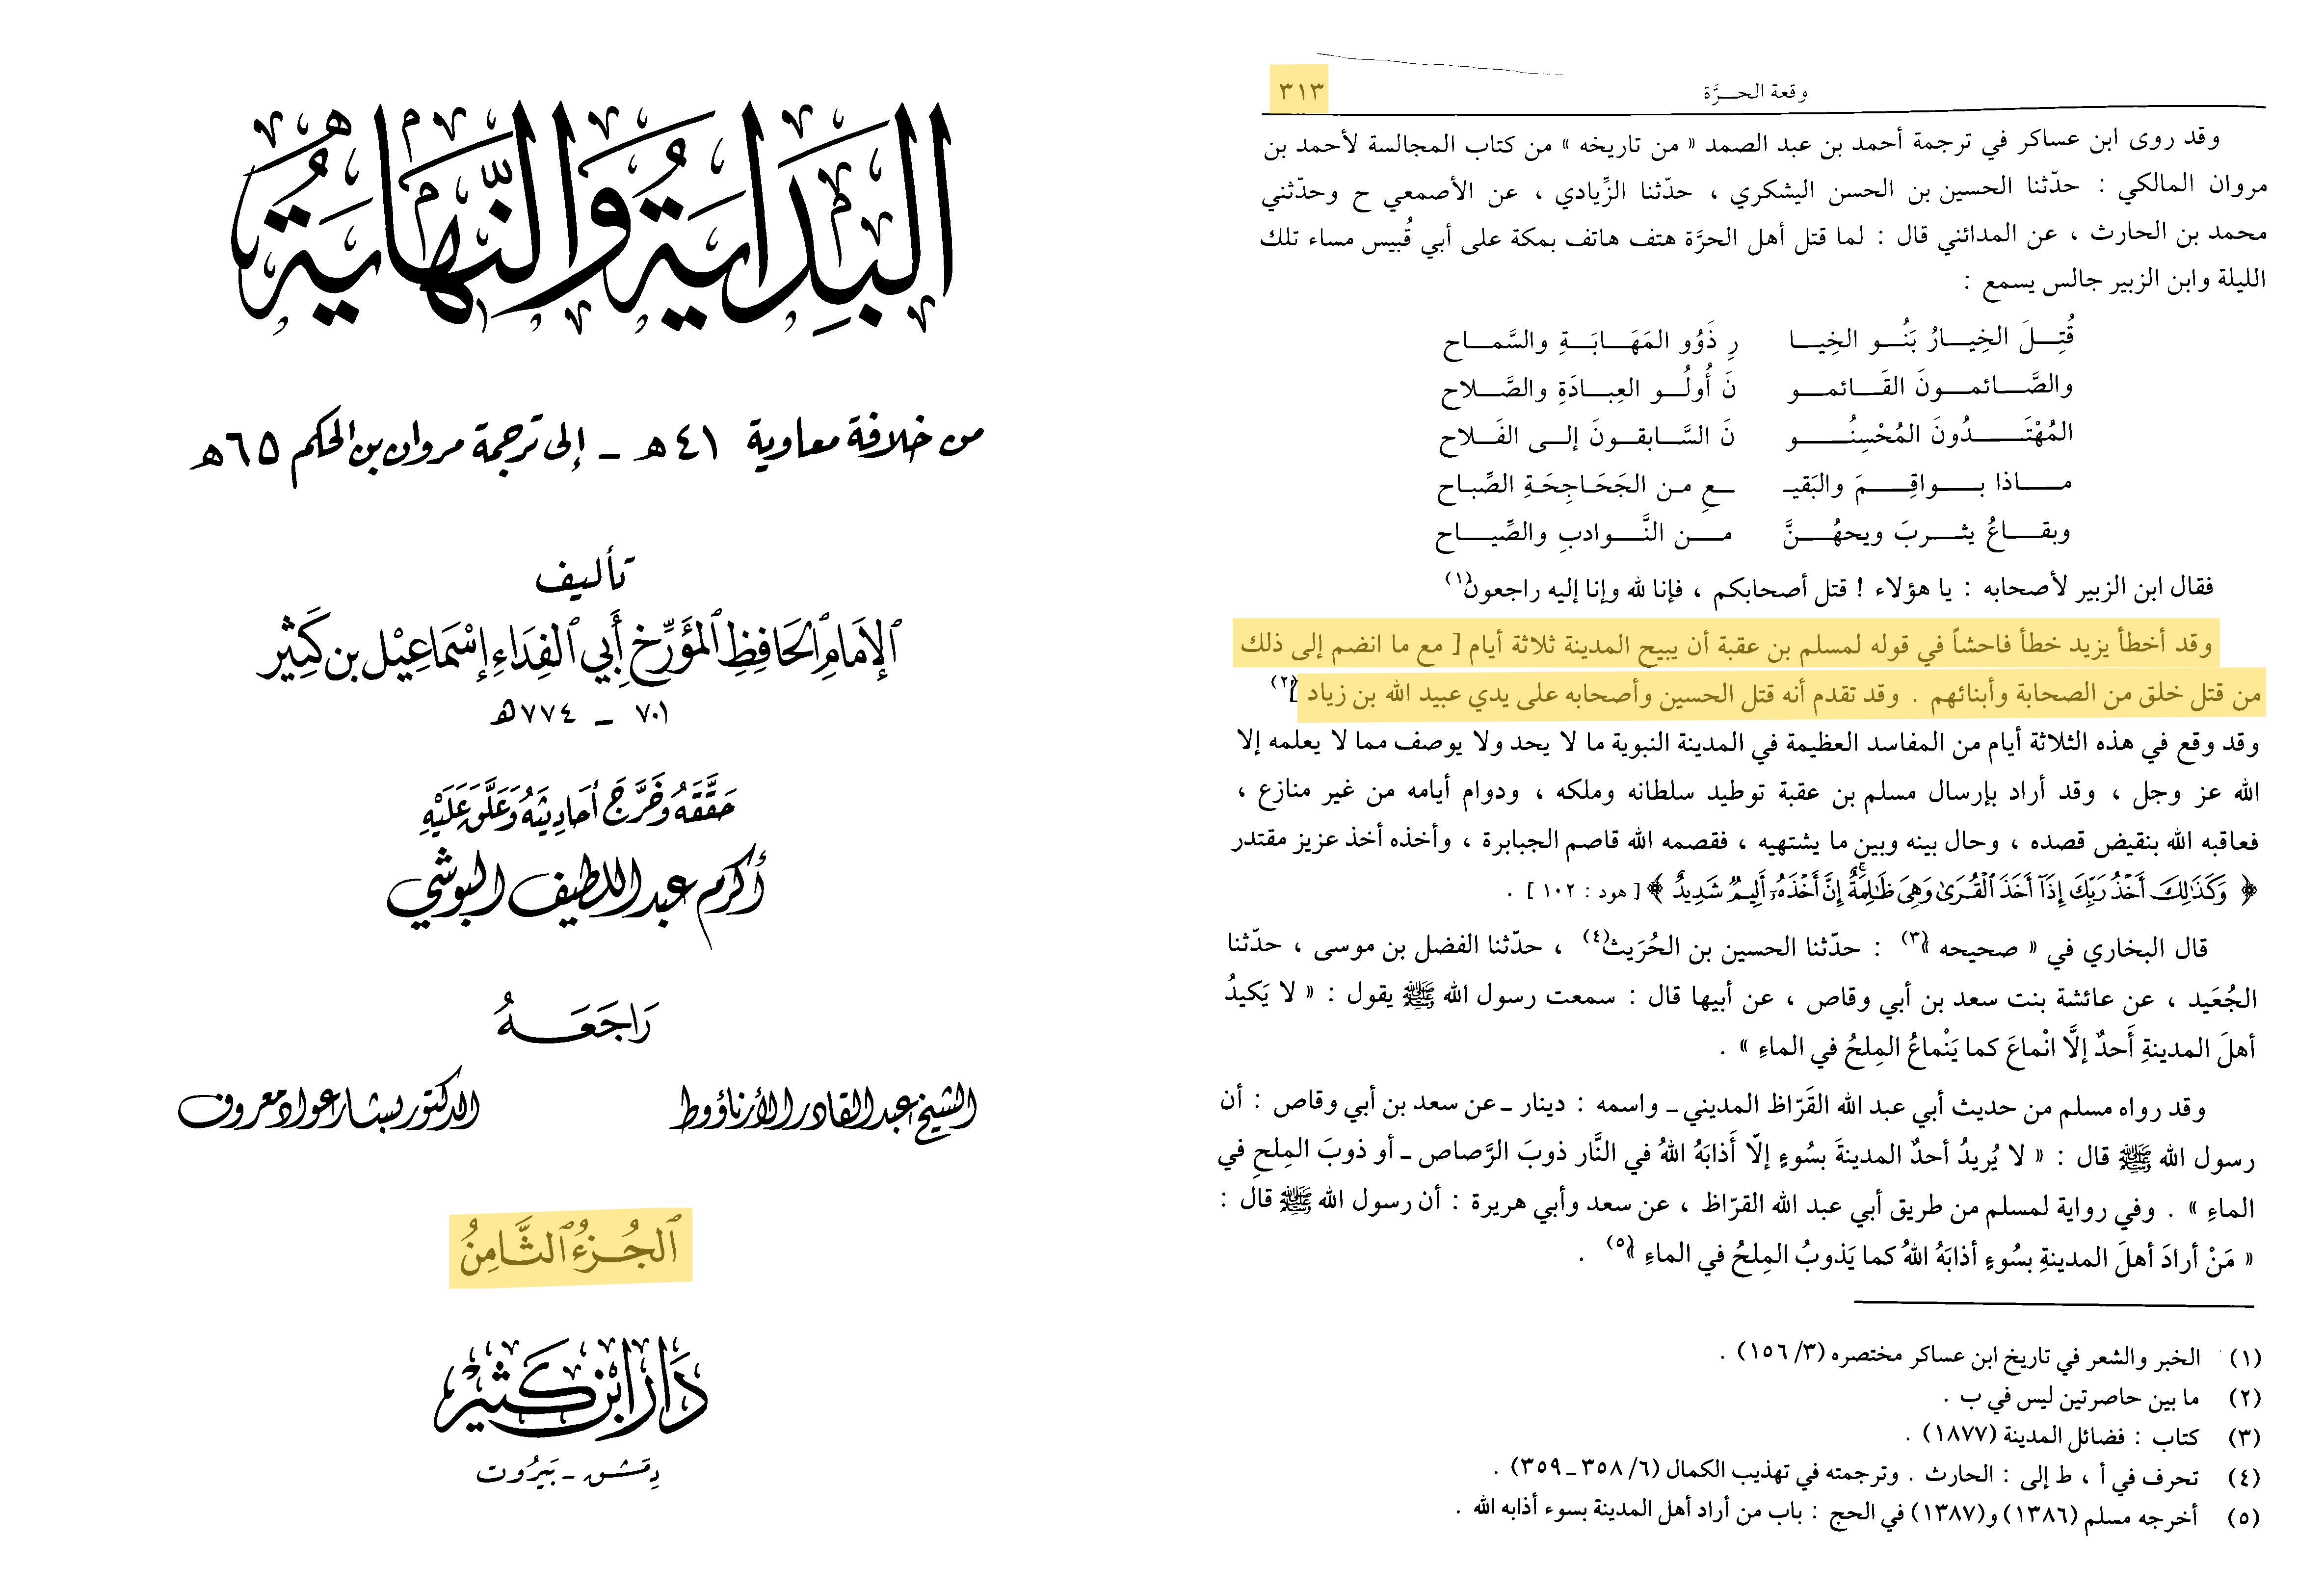 البداية والنهاية
من خلافة معاوية ٤١ هـ - إلى ترجمة مروان بن الحكم ٦٥ هـ
تأليف
الإمام الحافظ المؤرخ أبي الفداء إسماعيل بن كثير
٧٠١ - ٧٧٤ هـ
حققه وخرج أحاديثه وعلق عليه
أكرم عبد اللطيف البوشي
راجعه
الشيخ عبد القادر الأرناؤوط
الدكتور بشار عواد معروف
الجزء الثامن
دار ابن كثير
دمشق - بيروت
وقعة الحرَّة
٣١٣
وقد روى ابن عساكر في ترجمة أحمد بن عبد الصمد « من تاريخه » من كتاب المجالسة لأحمد بن
مروان المالكي : حدّثنا الحسين بن الحسن اليشكري ، حدّثنا الزِّيادي ، عن الأصمعي ح وحدّثني
محمد بن الحارث ، عن المدائني قال : لما قتل أهل الحرَّة هتف هاتف بمكة على أبي قُبيس مساء تلك
الليلة وابن الزبير جالس يسمع :
قُتِلَ الخِيارُ بَنُو الخِيا رِ ذَوُو المَهَابَةِ والسَّماح
والصَّائمونَ القَائمو نَ أُولُو العِبادَةِ والصَّلاح
المُهْتَدُونَ المُحْسِنُو نَ السَّابقونَ إلى الفَلاح
ماذا بواقِمَ والبَقيـ ـعِ من الجَحَاجِحَةِ الصِّباح
وبقاعُ يثربَ ويحهُنَّ من النَّوادبِ والصِّياح
فقال ابن الزبير لأصحابه : يا هؤلاء ! قتل أصحابكم ، فإنا لله وإنا إليه راجعون(١)
وقد أخطأ يزيد خطأ فاحشاً في قوله لمسلم بن عقبة أن يبيح المدينة ثلاثة أيام [ مع ما انضم إلى ذلك
من قتل خلق من الصحابة وأبنائهم . وقد تقدم أنه قتل الحسين وأصحابه على يدي عبيد الله بن زياد ](٢)
وقد وقع في هذه الثلاثة أيام من المفاسد العظيمة في المدينة النبوية ما لا يحد ولا يوصف مما لا يعلمه إلا
الله عز وجل ، وقد أراد بإرسال مسلم بن عقبة توطيد سلطانه وملكه ، ودوام أيامه من غير منازع ،
فعاقبه الله بنقيض قصده ، وحال بينه وبين ما يشتهيه ، فقصمه الله قاصم الجبابرة ، وأخذه أخذ عزيز مقتدر
﴿ وَكَذَٰلِكَ أَخْذُ رَبِّكَ إِذَآ أَخَذَ ٱلْقُرَىٰ وَهِىَ ظَٰلِمَةٌ إِنَّ أَخْذَهُۥٓ أَلِيمٌ شَدِيدٌ ﴾ [ هود : ١٠٢ ] .
قال البخاري في « صحيحه »(٣) : حدّثنا الحسين بن الحُرَيث(٤) ، حدّثنا الفضل بن موسى ، حدّثنا
الجُعَيد ، عن عائشة بنت سعد بن أبي وقاص ، عن أبيها قال : سمعت رسول الله ﷺ يقول : « لا يَكيدُ
أهلَ المدينةِ أَحدٌ إلَّا انْماعَ كما يَنْماعُ المِلحُ في الماءِ » .
وقد رواه مسلم من حديث أبي عبد الله القَرّاظ المديني ـ واسمه : دينار ـ عن سعد بن أبي وقاص : أن
رسول الله ﷺ قال : « لا يُريدُ أحدٌ المدينةَ بسُوءٍ إلّا أَذابَهُ اللهُ في النَّار ذوبَ الرَّصاص ـ أو ذوبَ المِلحِ في
الماءِ » . وفي رواية لمسلم من طريق أبي عبد الله القرّاظ ، عن سعد وأبي هريرة : أن رسول الله ﷺ قال :
« مَنْ أرادَ أهلَ المدينةِ بسُوءٍ أذابَهُ اللهُ كما يَذوبُ المِلحُ في الماءِ »(٥) .
(١) الخبر والشعر في تاريخ ابن عساكر مختصره (٣/ ١٥٦) .
(٢) ما بين حاصرتين ليس في ب .
(٣) كتاب : فضائل المدينة (١٨٧٧) .
(٤) تحرف في أ ، ط إلى : الحارث . وترجمته في تهذيب الكمال (٦/ ٣٥٨ ـ ٣٥٩) .
(٥) أخرجه مسلم (١٣٨٦) و(١٣٨٧) في الحج : باب من أراد أهل المدينة بسوء أذابه الله .